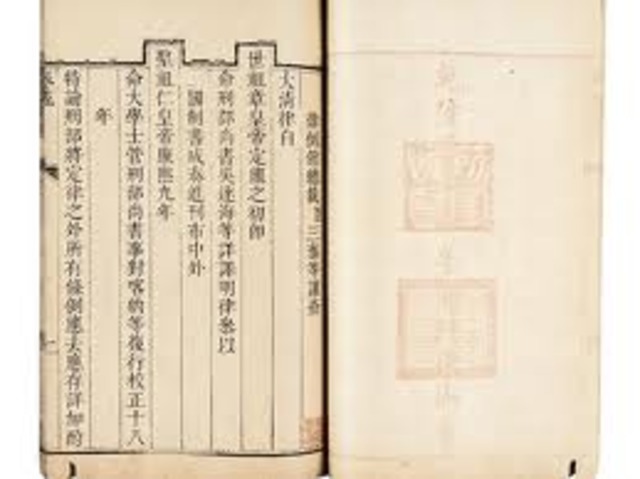 律例館總裁三泰等謹奏
大清律自
世祖章皇帝定鼎之初即
命刑部尚書吳達海等詳譯明律參以
國制書成奏進刊布中外
聖祖仁皇帝康熙九年
命大學士管刑部尚書事對喀納等復行校正十八
年
特諭刑部將定律之外所有條例應去應存詳加酌